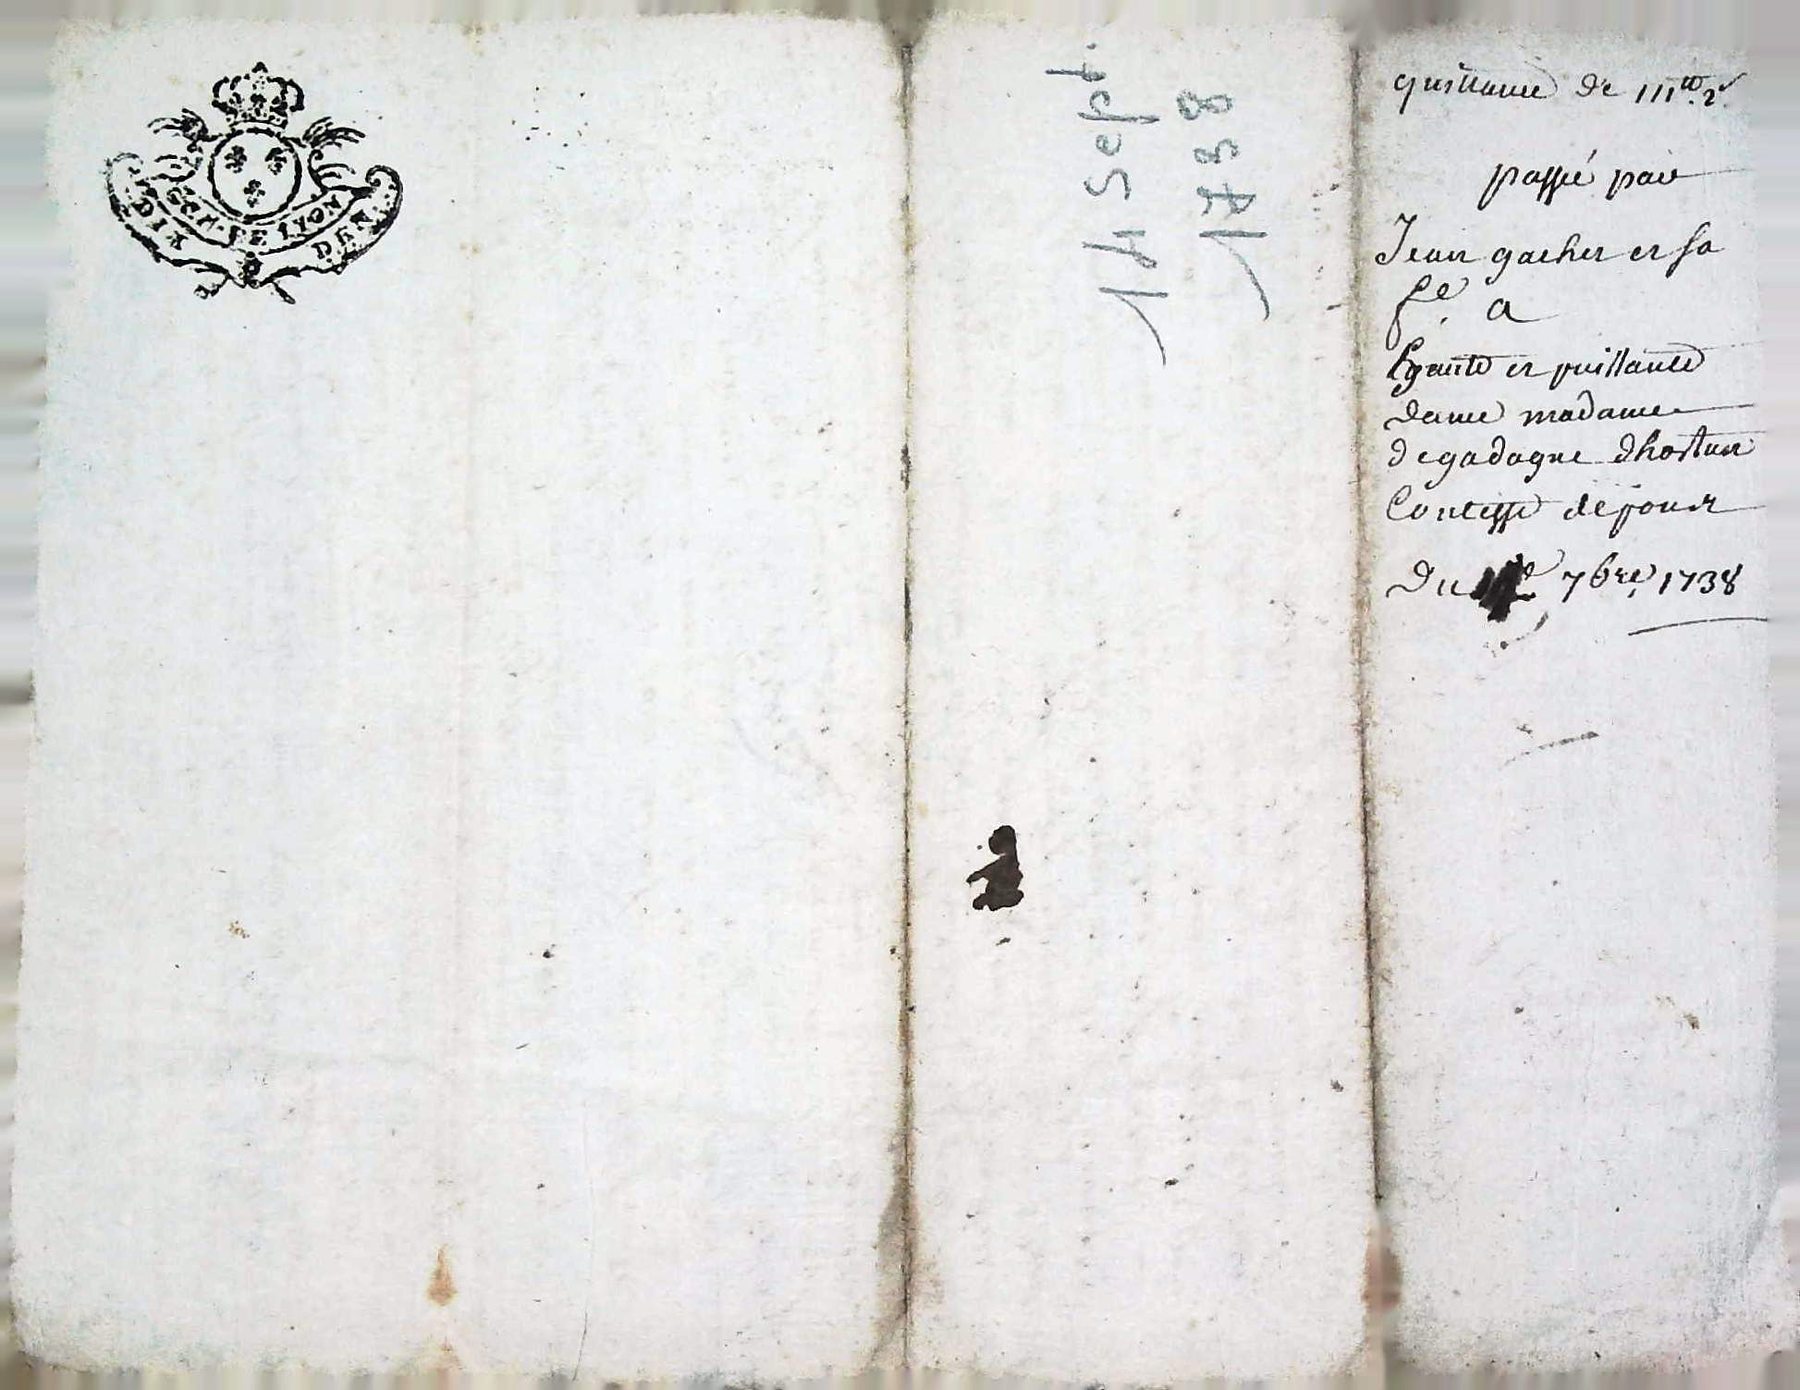 GEN. DE LYON
DIX DEN.
14 Sept.
1738
quittance de 111tt. 2s
passée par
Jean gacher et sa
fe. a
hte et puissante
dame madame
de gadagne dhostun
Contesse de pont
Du 7bre, 1738